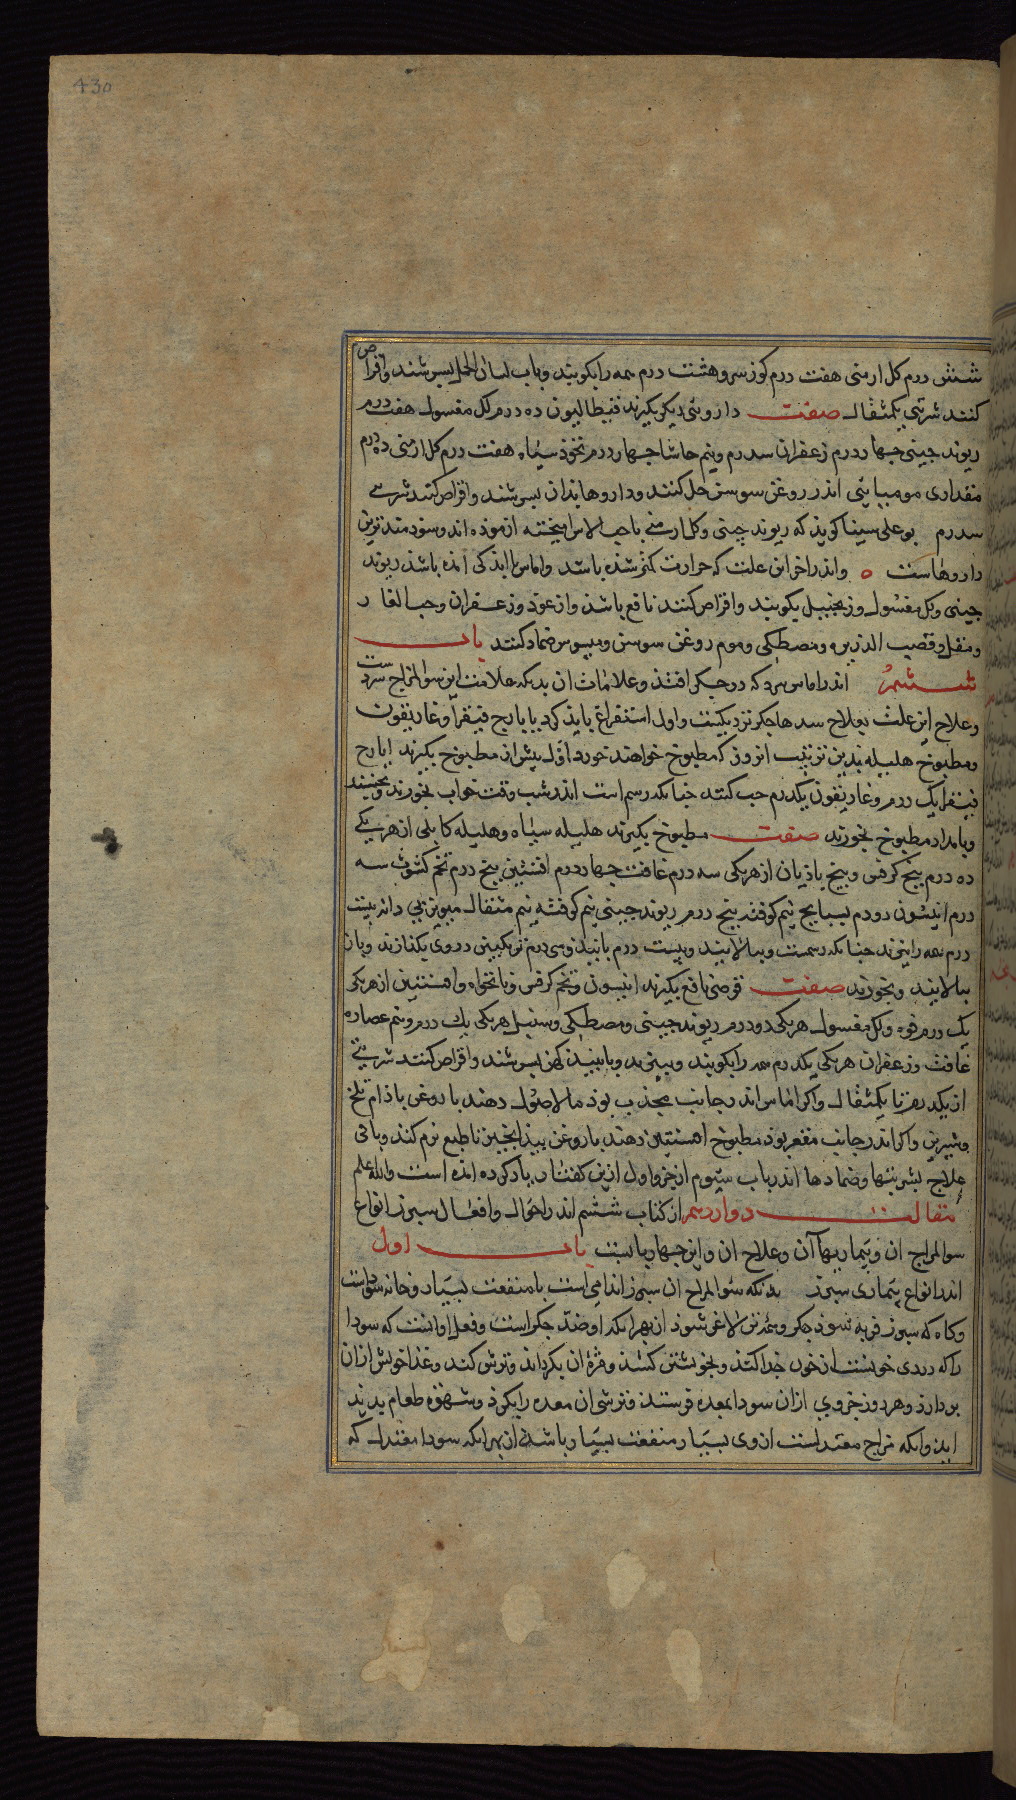 430
شش درم کل ارمنی هفت درم کوزسرو هشت درم همه را بکوبند وباب لسان الحمل بسرشند واقراص
کنند شربتی یکمثقال صفت داروئی دیکر بکیرند قنطالیون ده درم لک مغسول هفت درم
ریوند جینی جهار درم زعفران سدرم ونیم حاشا جهار درم نخود سیاه هفت درم کل ارمنی ده درم
مقداری مومیائی اندر روغن سوسن حل کنند وداروها بدان بسرشند واقراص کنند شربتی
سدرم بوعلی سینا کوید که ریوند چینی وکل ارمنی باحب الاس امیخته ازموده اند وسودمندترین
داروهاست ه واندر اخر این علت که حرارت کمتر شده باشد واماس باندکی امده باشد ریوند
جینی ولک مغسول وزنجبیل بکوبند واقراص کنند نافع باشد وازعود وزعفران وحب الغار
ومقل وقصب الذریره ومصطکی وموم روغن سوسن ومیسوس ضماد کنند باب
ششم اندر اماس سرد که در جکر افتد وعلامات ان بدانکه علامت این سوالمزاج سردست
وعلاج این علت بعلاج سدهاجکر نزدیکست واول استفراغ باید کرد بایارج فیقرا وغاریقون
ومطبوخ هلیله بدین ترتیب انروز که مطبوخ خواهند خورد اول بیش از مطبوخ بکیرند ایارج
فیقرا یک درم وغاریقون یکدرم حب کنند جنانکه رسم است اندر شب وقت خواب بخورند وبخسبند
وبامداد مطبوخ بخورند صفت مطبوخ بکیرند هلیله سیاه وهلیله کابلی ازهریکی
ده درم بیخ کرفس وبیخ باذیان ازهریکی سه درم غافت جهار درم افسنتین بنج درم تخم کشوث سه
درم انیسون دودرم بسبایج نیم کوفته بنج درم ریوند جینی نیم کوفته نیم مثقال میویز بی دانه بیست
درم همه را بپزند جنانکه رسمست وببالایند وبیست درم بانبید وسی درم ترنکبین دروی بکدازند وباز
ببالایند وبخورند صفت قرصی نافع بکیرند انیسون وتخم کرفس ونانخواه وافسنتین ازهریکی
یک درم فوه ولک مغسول هریکی دودرم ریوند جینی ومصطکی وسنبل هریکی یک درم ونیم عصاره
غافت وزعفران هریکی یکدرم همه را بکوبند وببیزند وبانبیذ کهن بسرشند واقراص کنند شربتی
ازیکدرم تا یکمثقال واکر اماس اندر جانب محدب بود ماالاصول دهند باروغن باذام تلخ
وشیرین واکر اندر جانب مقعر بود مطبوخ افسنتین دهند باروغن بیدانجیر تا طبع نرم کند وباقی
علاج بشربتها وضمادها اندر باب سیوم ازجزو اول ازین کفتار یاد کرده امده است والله اعلم
مقالت دوازدهم از کتاب ششم اندر احوال وافعال سپرز انواع
سوالمزاج ان وبیماریهاآن وعلاج ان واین جهار بابست باب اول
اندر انواع بیماری سپرز بدانکه سوالمزاج ان سپرز اندامی است بامنفعت بسیار وخانه سوداست
وکاه که سپرز فربه شود جکر وهمه تن لاغر شود ازبهر انکه اوضد جکر است وفعل اوانست که سودا
راکه دردی خونست از خون جدا کند وبخویشتن کشد ومزه ان بکرداند وترش کند وغذا خویش ازان
بردارد وهر روز جزوی ازان سودا بمعده فرستد وترشی ان معده را بکزد وشهوه طعام بدید
اید وانکه مزاج معتدلست ازوی بسیار منفعت بسیار باشد ازبهر انکه سودا مقدار که